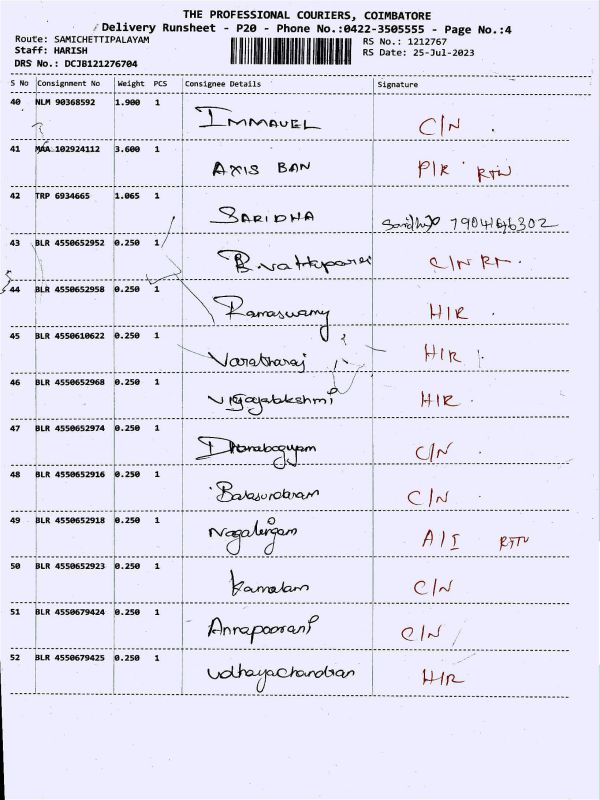 THE PROFESSIONAL COURIERS, COIMBATORE
Delivery Runsheet - P20 - Phone No.:0422-3505555 - Page No.:4
Route: SAMICHETTIPALAYAM
Staff: HARISH
DRS No.: DCJB121276704
RS No.: 1212767
RS Date: 25-Jul-2023
S No Consignment No Weight PCS Consignee Details Signature
40 NLM 90368592 1.900 1 IMMAVEL C/N
41 MAA 102924112 3.600 1 AXIS BAN P/R RTN
42 TRP 6934665 1.065 1 SARIDHA
43 BLR 4550652952 0.250 1 C/N
44 BLR 4550652958 0.250 1 Ramaswamy H/R
45 BLR 4550610622 0.250 1 Varatharaj H/R
46 BLR 4550652968 0.250 1 H/R
47 BLR 4550652974 0.250 1 C/N
48 BLR 4550652916 0.250 1 C/N
49 BLR 4550652918 0.250 1 Nagalingam A/I
50 BLR 4550652923 0.250 1 Kamalam C/N
51 BLR 4550679424 0.250 1 Annapoorani C/N
52 BLR 4550679425 0.250 1 Udhayachandran H/R